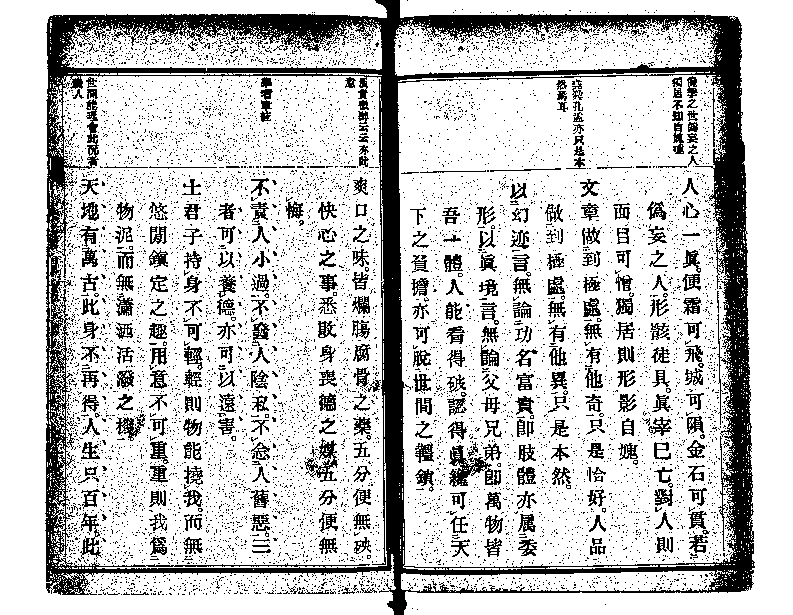 人心一眞。便霜可飛。城可隕。金石可貫。若
僞妄之人。形骸徒具。眞宰已亡。對人則
面目可憎。獨居則形影自媿。
文章做到極處。無有他奇。只是恰好。人品
做到極處。無有他異。只是本然。
以幻迹言。無論功名富貴。卽肢體亦属委
形。以眞境言。無論父母兄弟。卽萬物皆
吾一體。人能看得破。認得眞。纔可任天
下之負擔。亦可脫世間之韁鎖。
爽口之味。皆爛腸腐骨之藥。五分便無殃。
快心之事。悉敗身喪德之媒。五分便無
悔。
不責人小過。不發人陰私。不念人舊惡。三
者可以養德。亦可以遠害。
士君子持身不可輕。輕則物能撓我。而無
悠閒鎭定之趣。用意不可重。重則我爲
物泥。而無瀟洒活潑之機。
天地有萬古。此身不再得。人生只百年。此